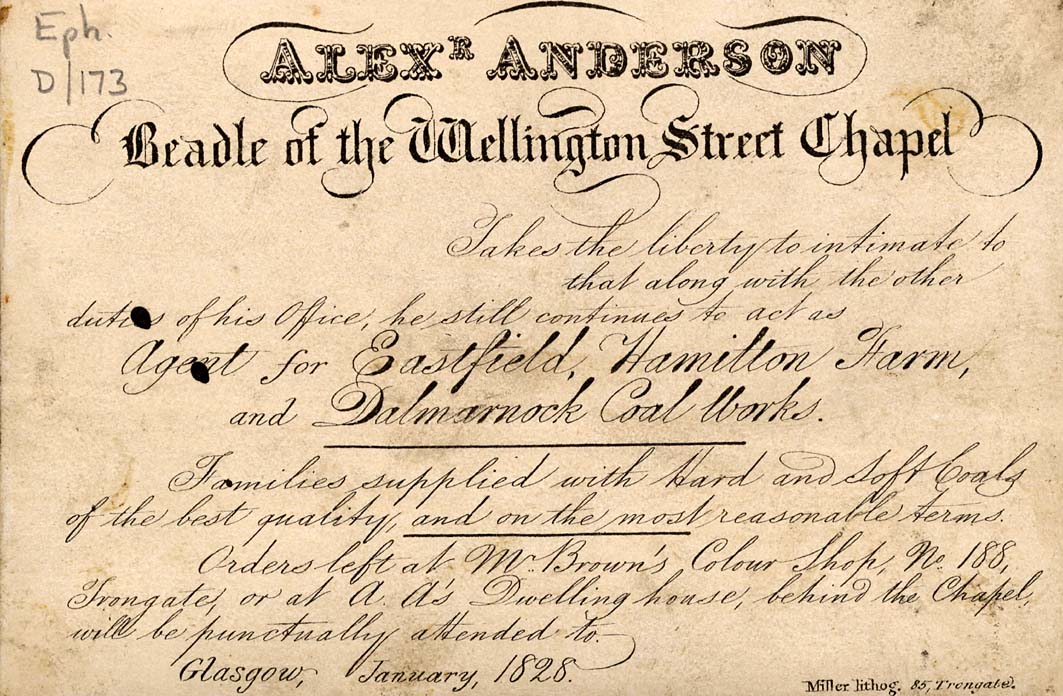 Eph.
D/173
ALEXR ANDERSON
Beadle of the Wellington Street Chapel
Takes the liberty to intimate to
that along with the other
duties of his Office, he still continues to act as
Agent for Eastfield, Hamilton Farm,
and Dalmarnock Coal Works.
Families supplied with Hard and Soft Coals
of the best quality, and on the most reasonable terms.
Orders left at Mr. Brown's Colour Shop, No. 188,
Trongate, or at A. A's Dwelling house, behind the Chapel,
will be punctually attended to.
Glasgow, January, 1828.
Miller lithog. 85 Trongate.